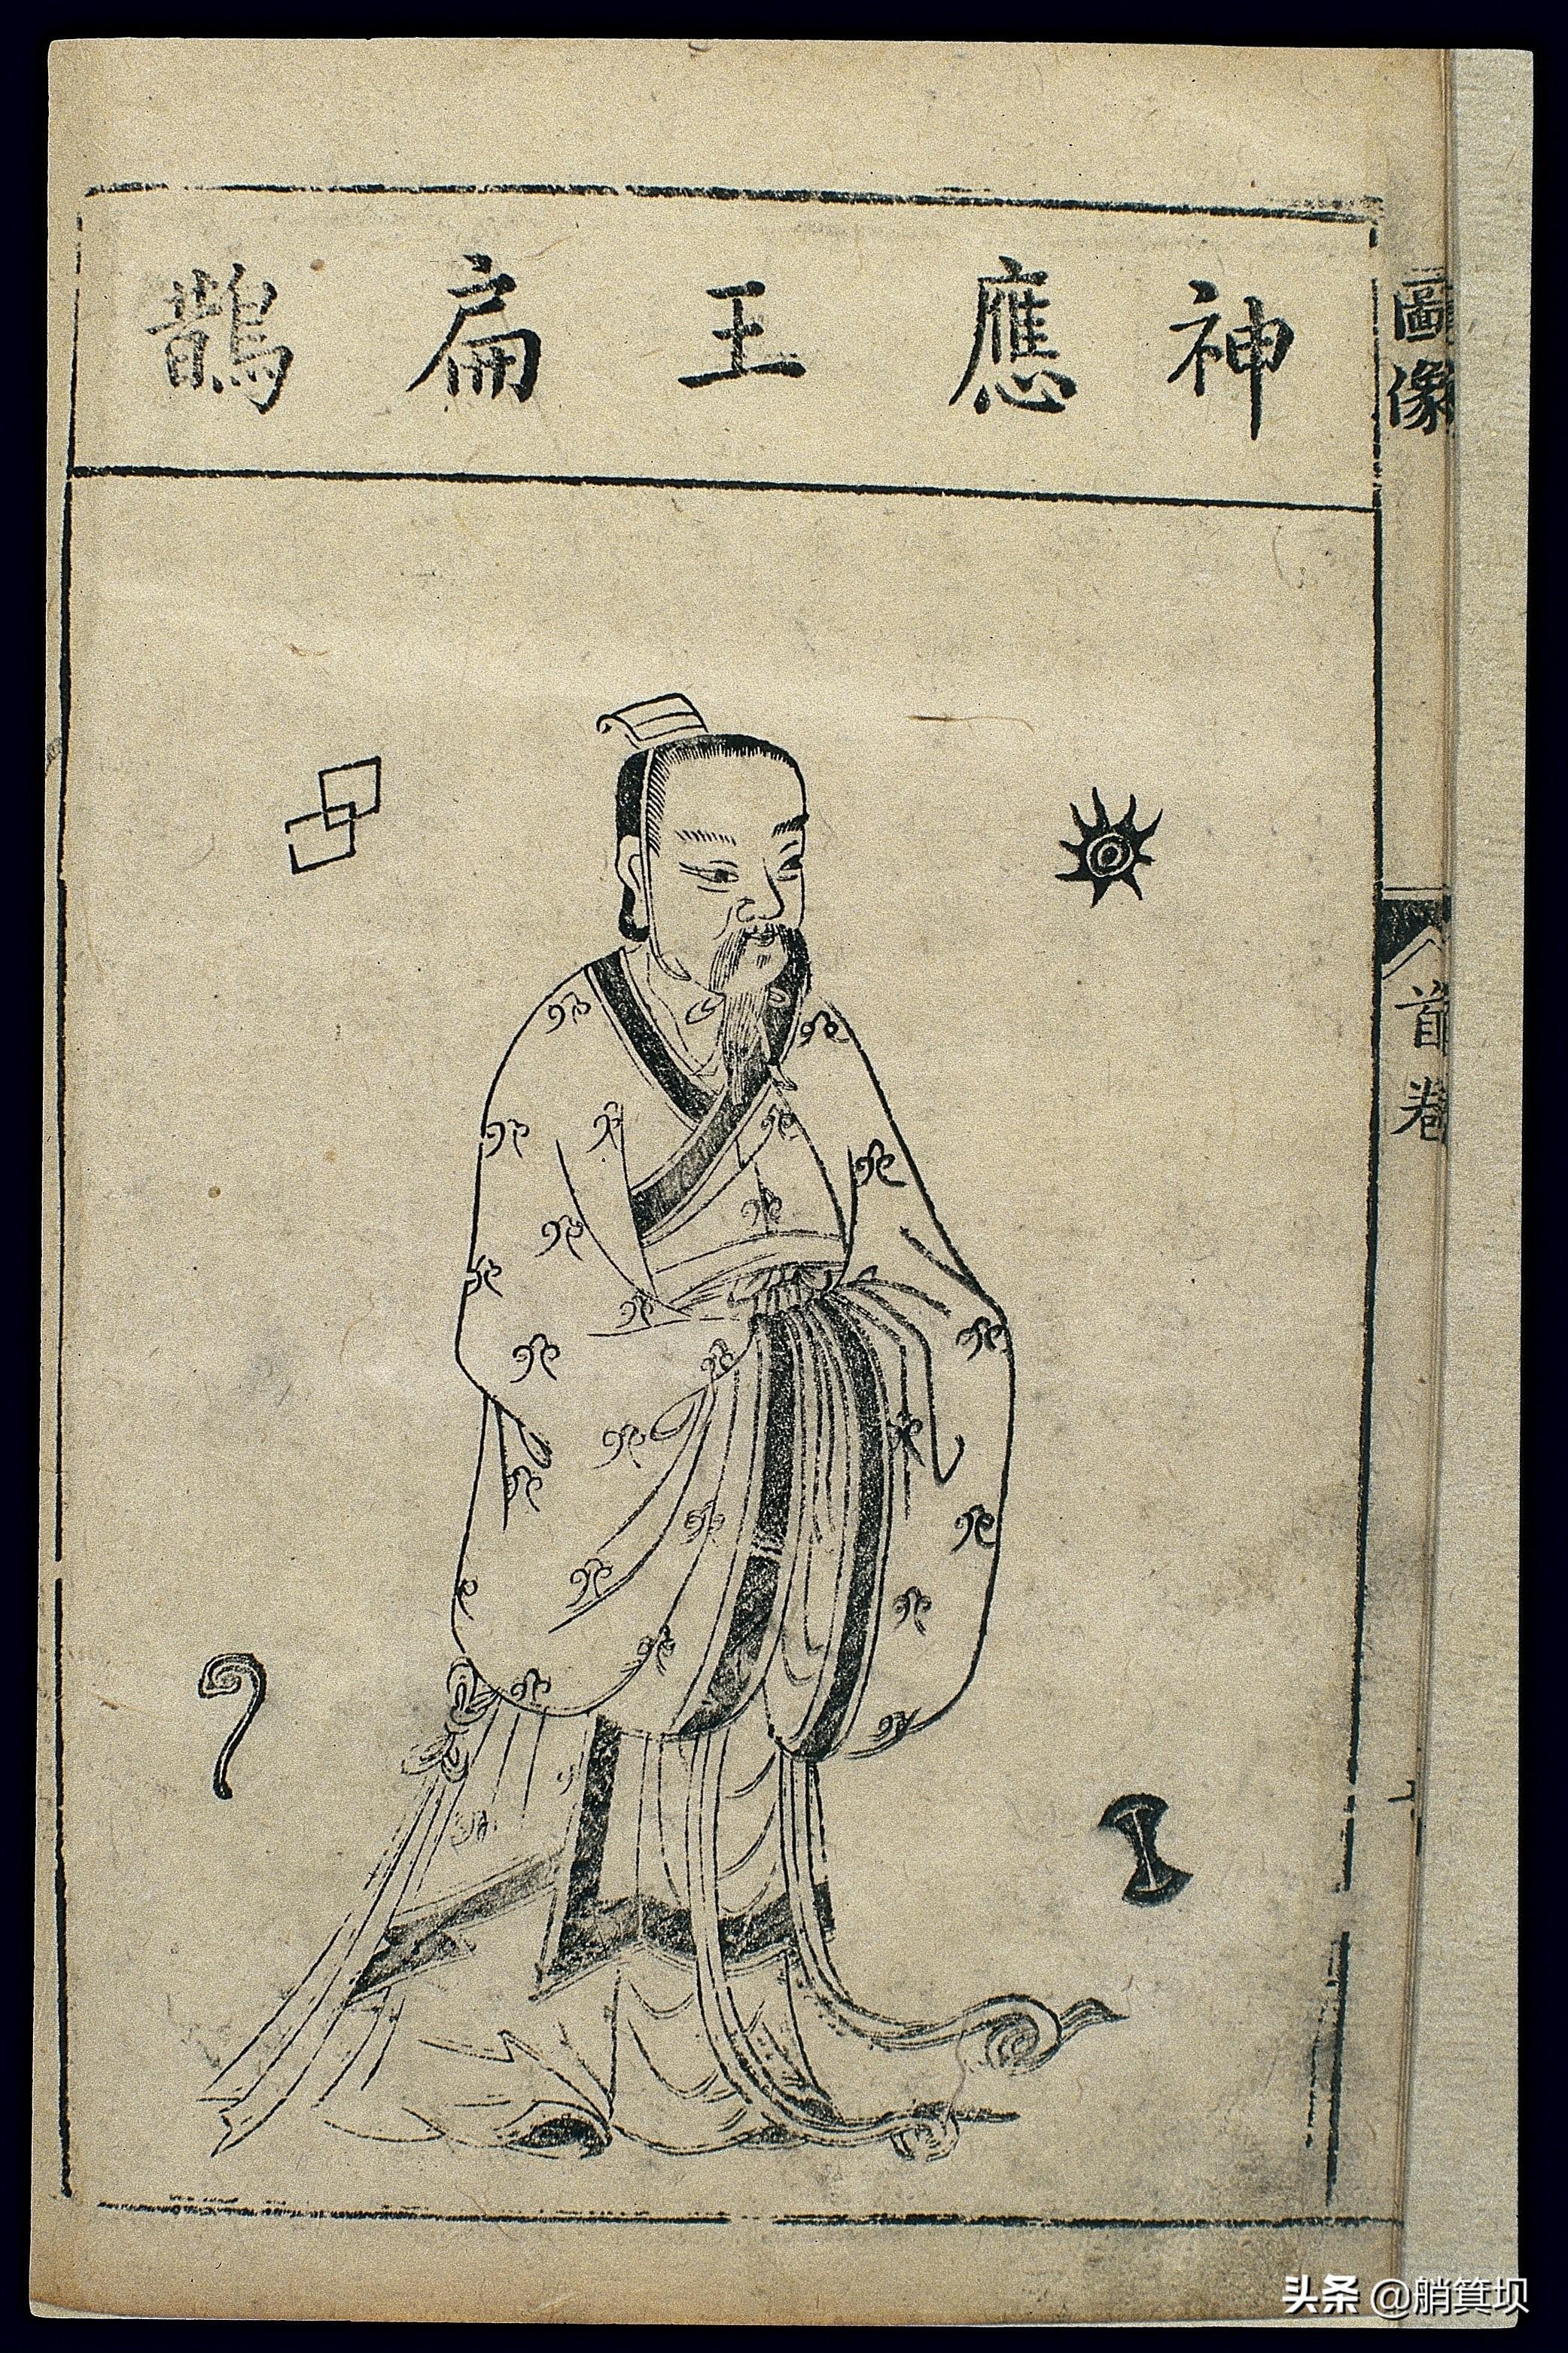 神應王扁鵲
圖像
首卷
头条 @艄箕坝